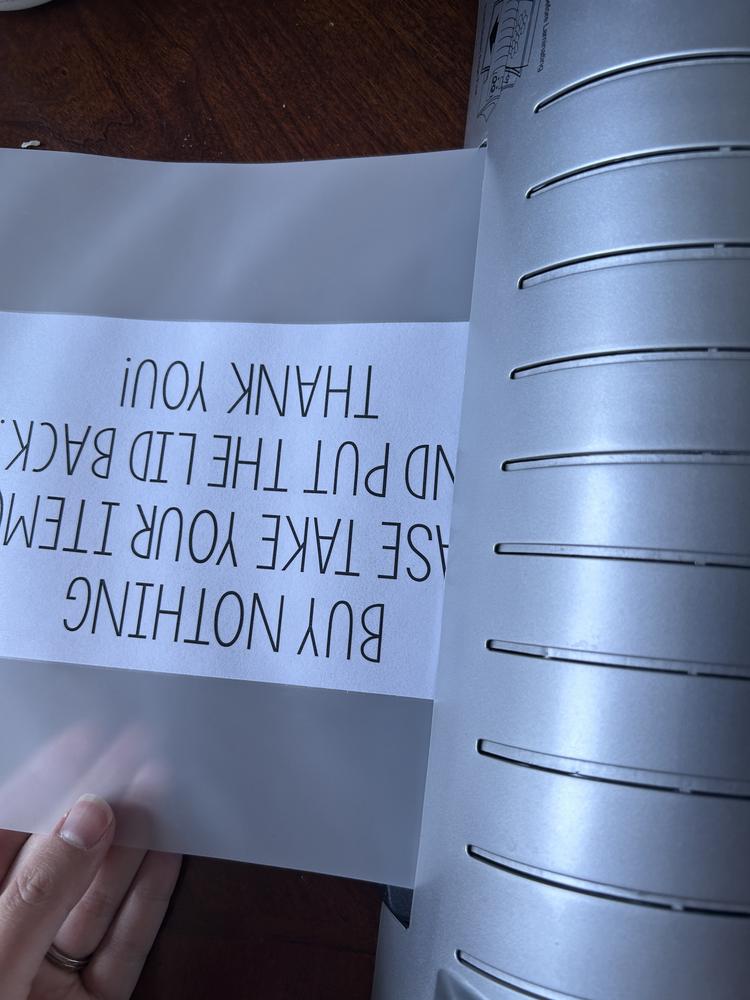 BUY NOTHING
ASE TAKE YOUR ITEM
ND PUT THE LID BACK.
THANK YOU!
Laminating